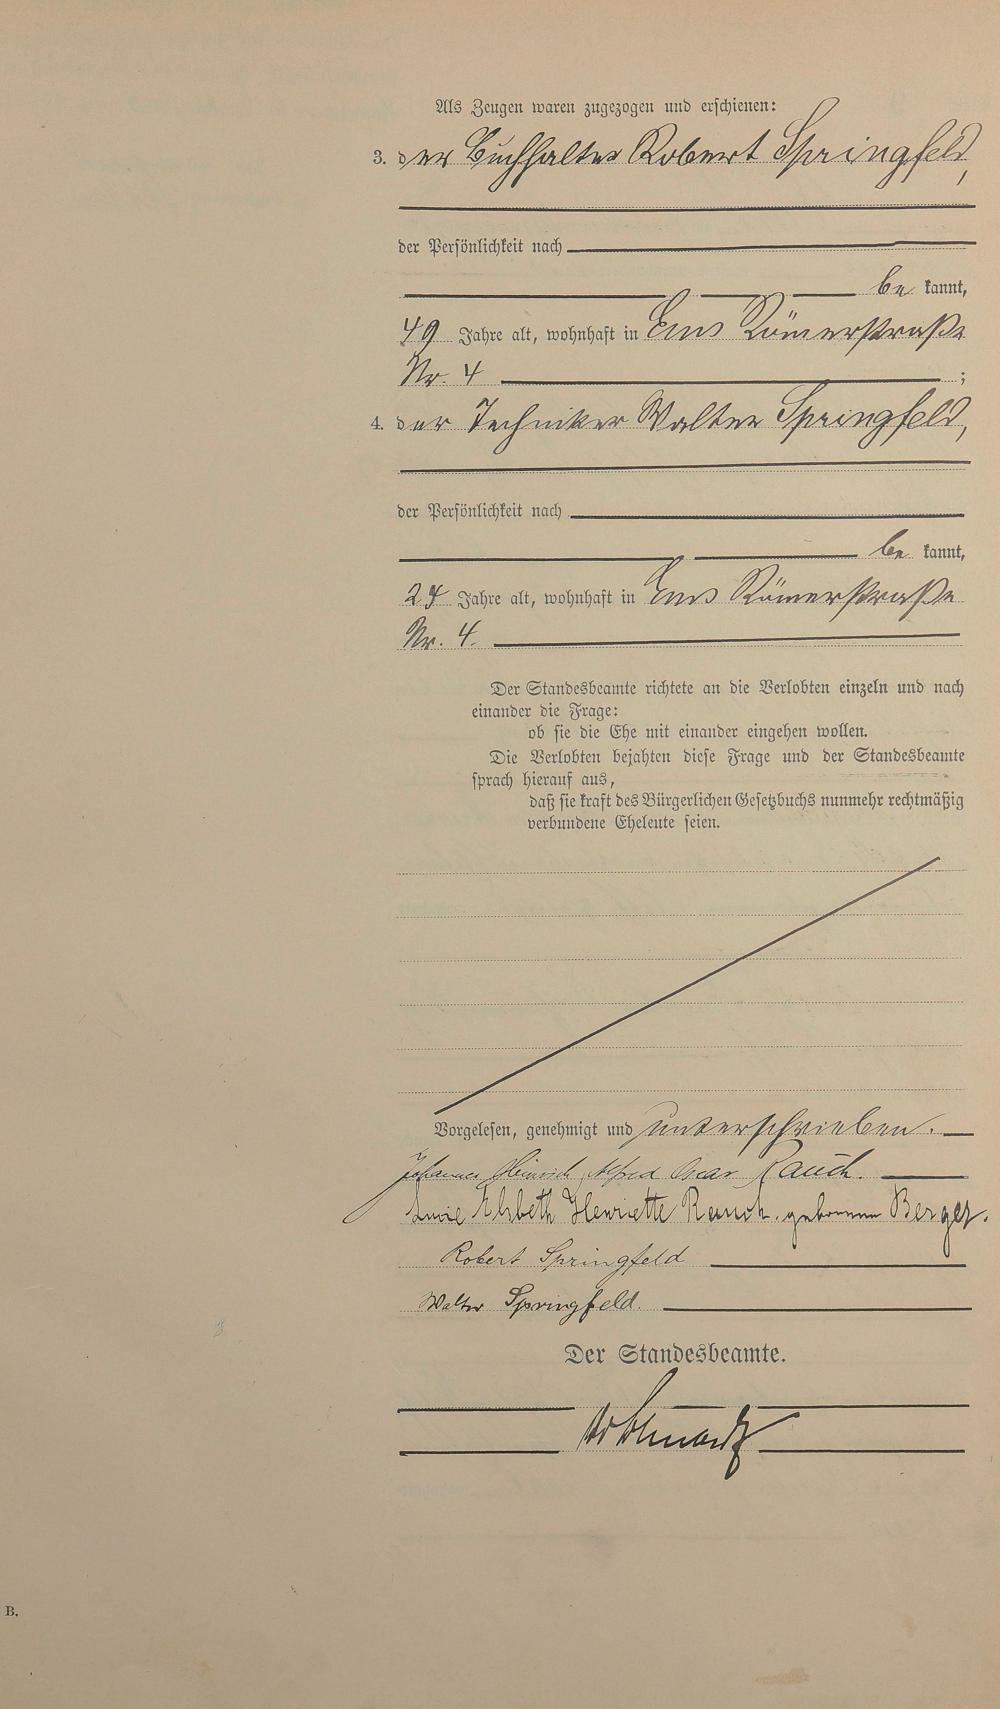 Als Zeugen waren zugezogen und erschienen:
3. der Buchhalter Robert Springfeld,
der Persönlichkeit nach
be kannt,
49 Jahre alt, wohnhaft in Ems Römerstraße
Nr. 4 ;
4. der Techniker Walter Springfeld,
der Persönlichkeit nach
be kannt,
24 Jahre alt, wohnhaft in Ems Römerstraße
Nr. 4.
Der Standesbeamte richtete an die Verlobten einzeln und nach
einander die Frage:
ob sie die Ehe mit einander eingehen wollen.
Die Verlobten bejahten diese Frage und der Standesbeamte
sprach hierauf aus,
daß sie kraft des Bürgerlichen Gesetzbuchs nunmehr rechtmäßig
verbundene Eheleute seien.
Vorgelesen, genehmigt und unterschrieben.
Johannes Heinrich Alfred Oscar Rauch.
Elsbeth Henriette Rauch, geborenen Berger.
Robert Springfeld
Walter Springfeld.
Der Standesbeamte.
B.